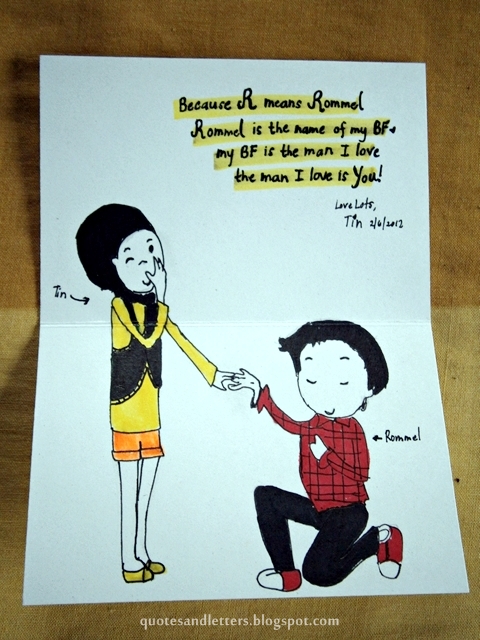 Because R means Rommel
Rommel is the name of my BF.
my BF is the man I love
the man I love is You!
Love Lots,
Tin 2/6/2012
Tin
Rommel
quotesandletters.blogspot.com